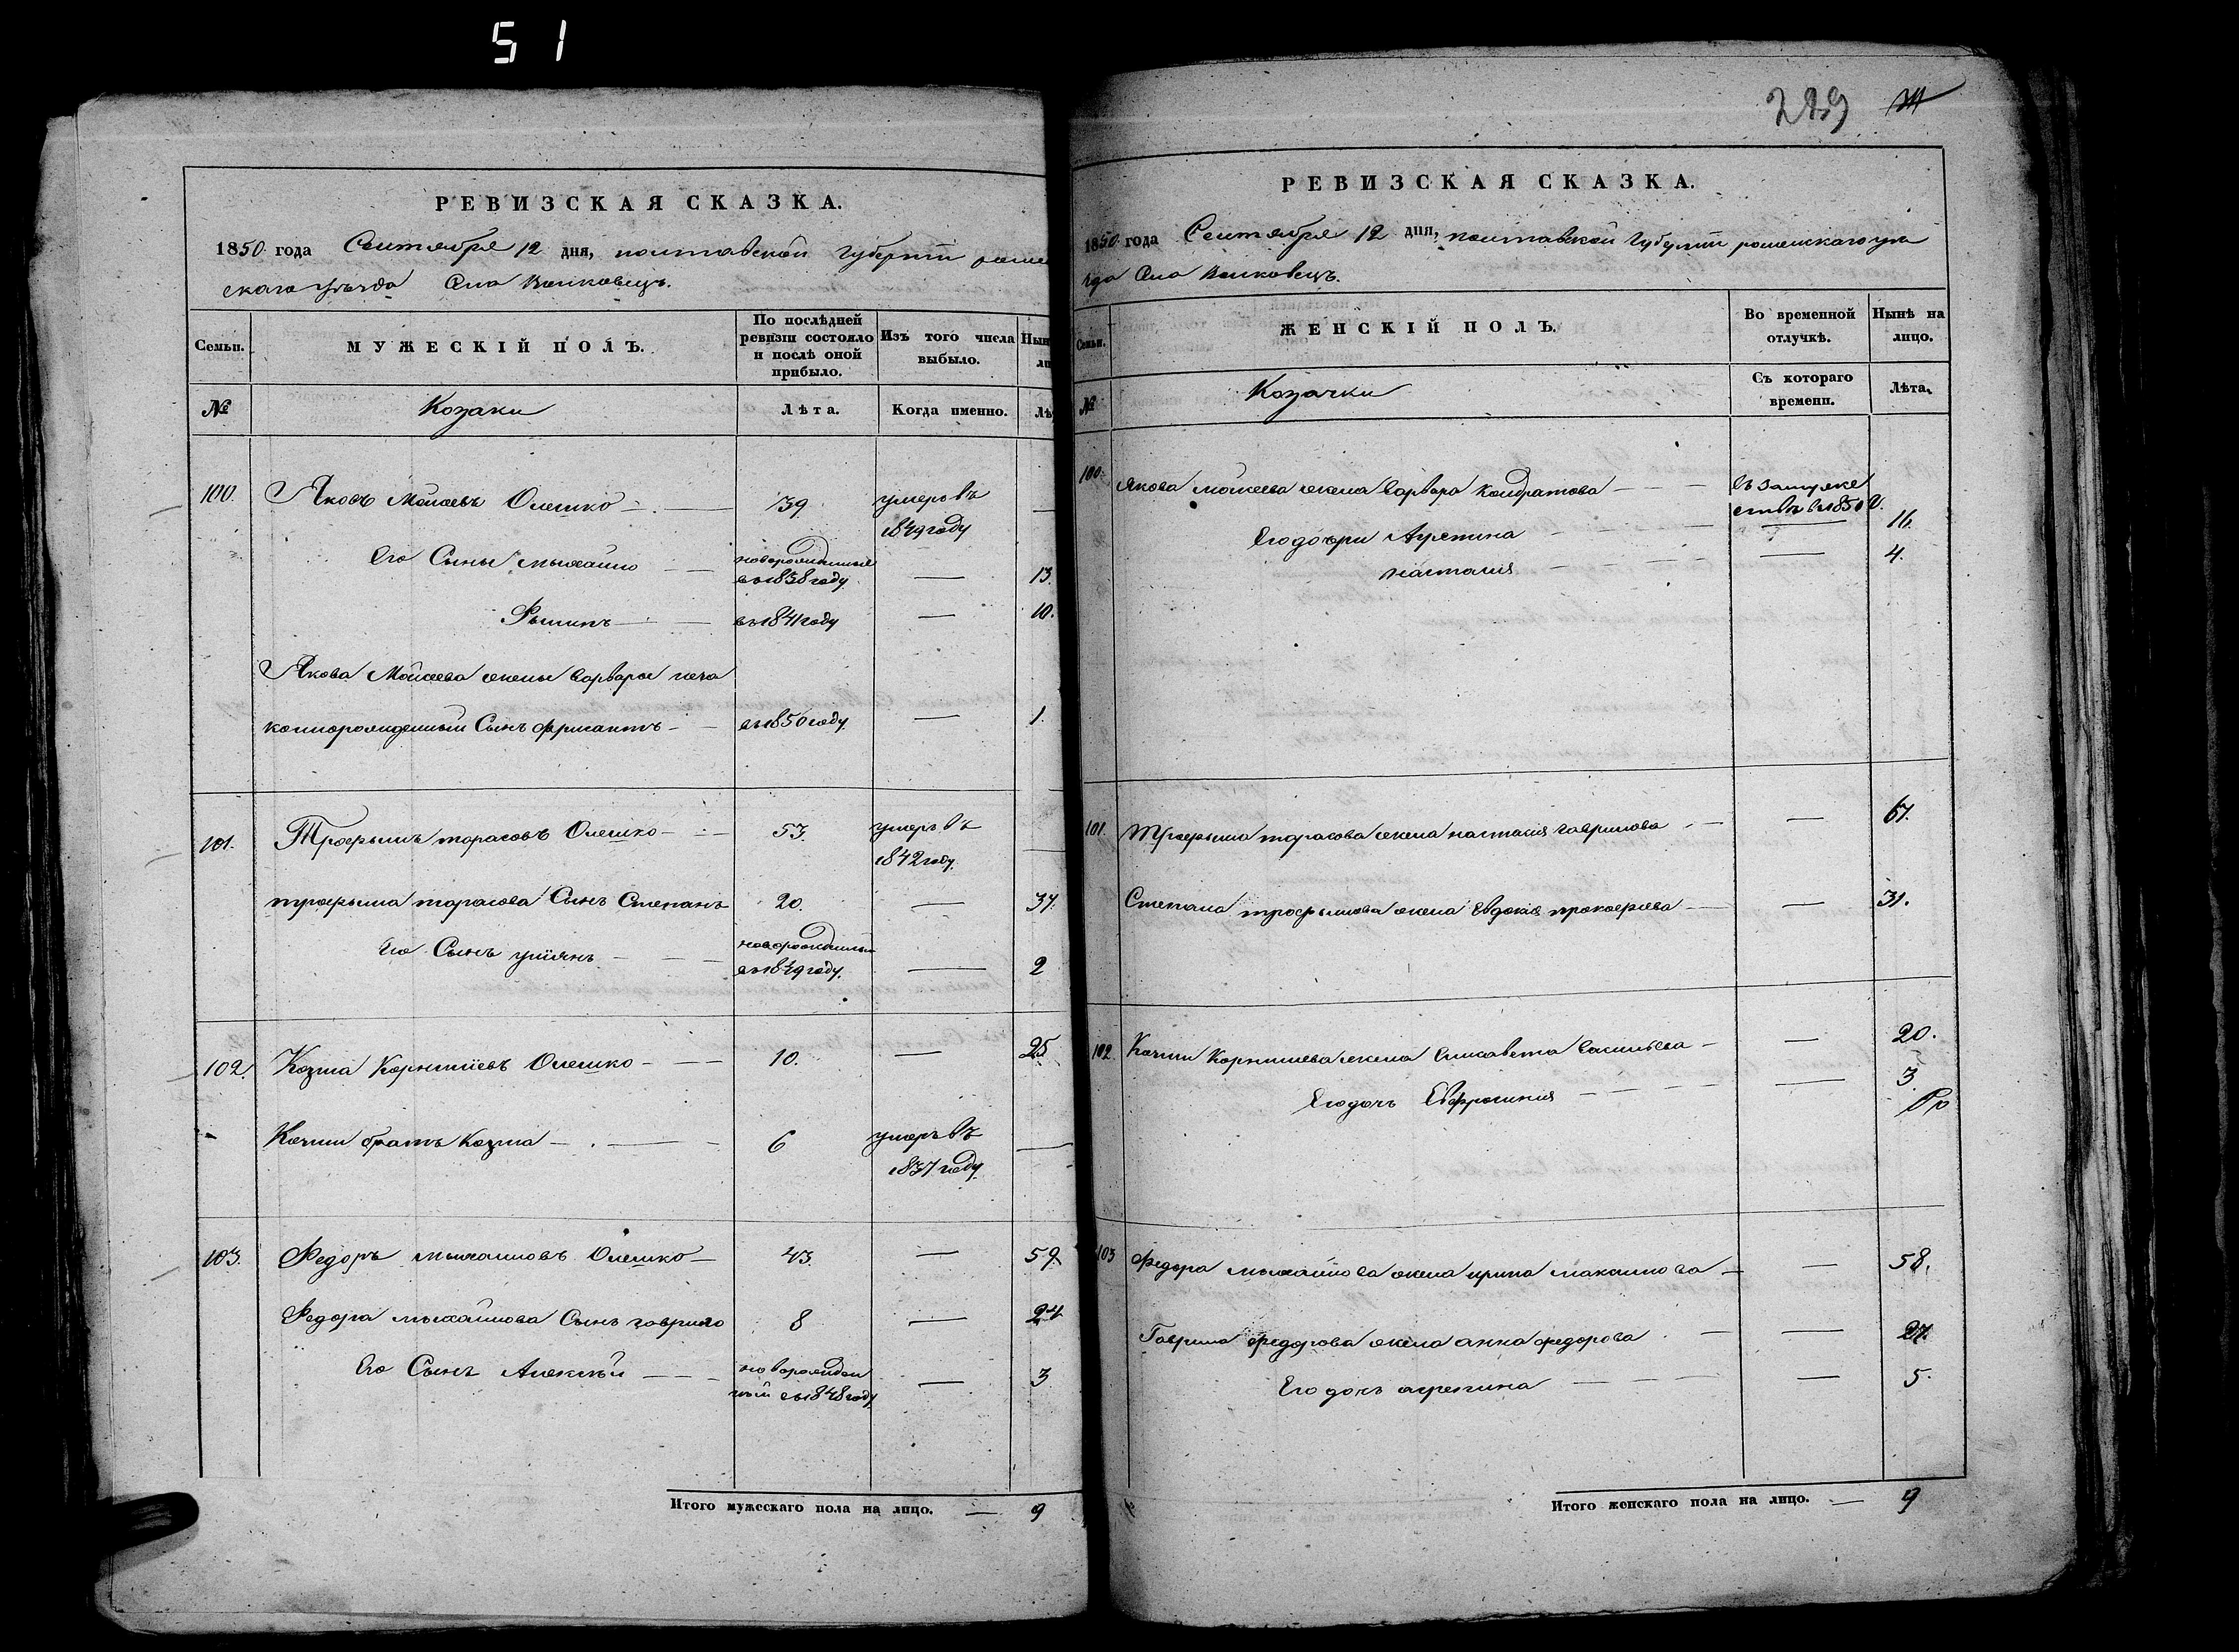 51
РЕВИЗСКАЯ СКАЗКА.
1850 года Сентября 12 дня, полтавской губерніи роме
скаго уѣзда Села Волковецъ.
Семьи. МУЖЕСКІЙ ПОЛЪ. По послѣдней ревизіи состояло и послѣ оной прибыло. Изъ того числа выбыло. Нын ли
№ Козаки Лѣта. Когда именно. Лѣ
100. Яковъ Мойсеевъ Олешко 39. умеръ въ
1849 году
Его Сыны михайло новорожденные
въ 1838 году 13.
Филипъ въ 1841 году 10.
Якова Мойсеева жены варвары неза
коннорожденный Сынъ въ 1850 году. 1.
101. Трофымъ тарасовъ Олешко 53. умеръ въ
1842 году.
трофыма тарасова Сынъ Степанъ 20.
Его Сынъ новорожденный
въ 1849 году. 2
102. Козма Корнилиевъ Олешко 10. 25
Козми братъ Козма 6 умеръ въ
1837 году.
103. Федоръ михайловъ Олешко 43. 59.
Федора михайлова Сынъ гаврило 8 24
Его Сынъ Алексѣй новорожден
ный въ 1848 году. 3
Итого мужескаго пола на лицо. 9
РЕВИЗСКАЯ СКАЗКА.
1850 года Сентября 12 дня, полтавской Губерніи роменскаго уѣз
да Села Волковецъ.
Семьи. ЖЕНСКІЙ ПОЛЪ. Во временной отлучкѣ. Нынѣ на лицо.
№ Козачки Съ котораго времени. Лѣта.
100. Якова мойсеева жена варвара кондратова въ замуже
ствѣ въ 1850 г.
Его дочри Агрепина 16.
настасия 4.
101. Трофыма тарасова жена настасия гаврилова 61.
Степана трофымова жена Евдокия прокофиева 31.
102. Козми Корнилиева жена Елисавета васильева 20.
Его дочь Евфросиния 3
103 Федора михайлова жена ирина максимова 58.
Гаврила федорова жена анна федорова 27.
Его дочь агрепина 5.
Итого женскаго пола на лицо. 9